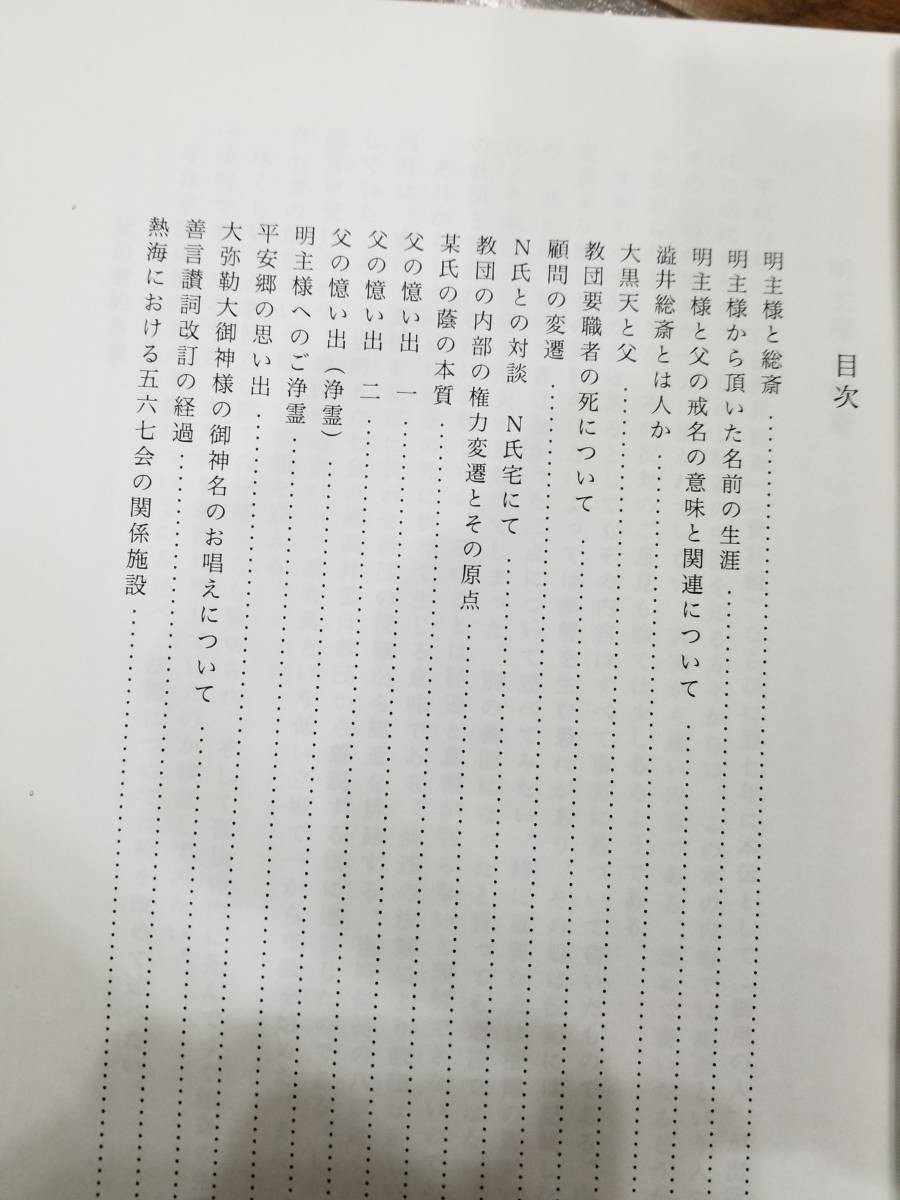 目次
明主様と総斎
明主様から頂いた名前の生涯
明主様と父の戒名の意味と関連について
澁井総斎とは人か
大黒天と父
教団要職者の死について
顧問の変遷
N氏との対談　N氏宅にて
教団の内部の権力変遷とその原点
某氏の蔭の本質
父の憶い出　一
父の憶い出　二
父の憶い出（浄霊）
明主様へのご浄霊
平安郷の思い出
大弥勒大御神様の御神名のお唱えについて
善言讃詞改訂の経過
熱海における五六七会の関係施設